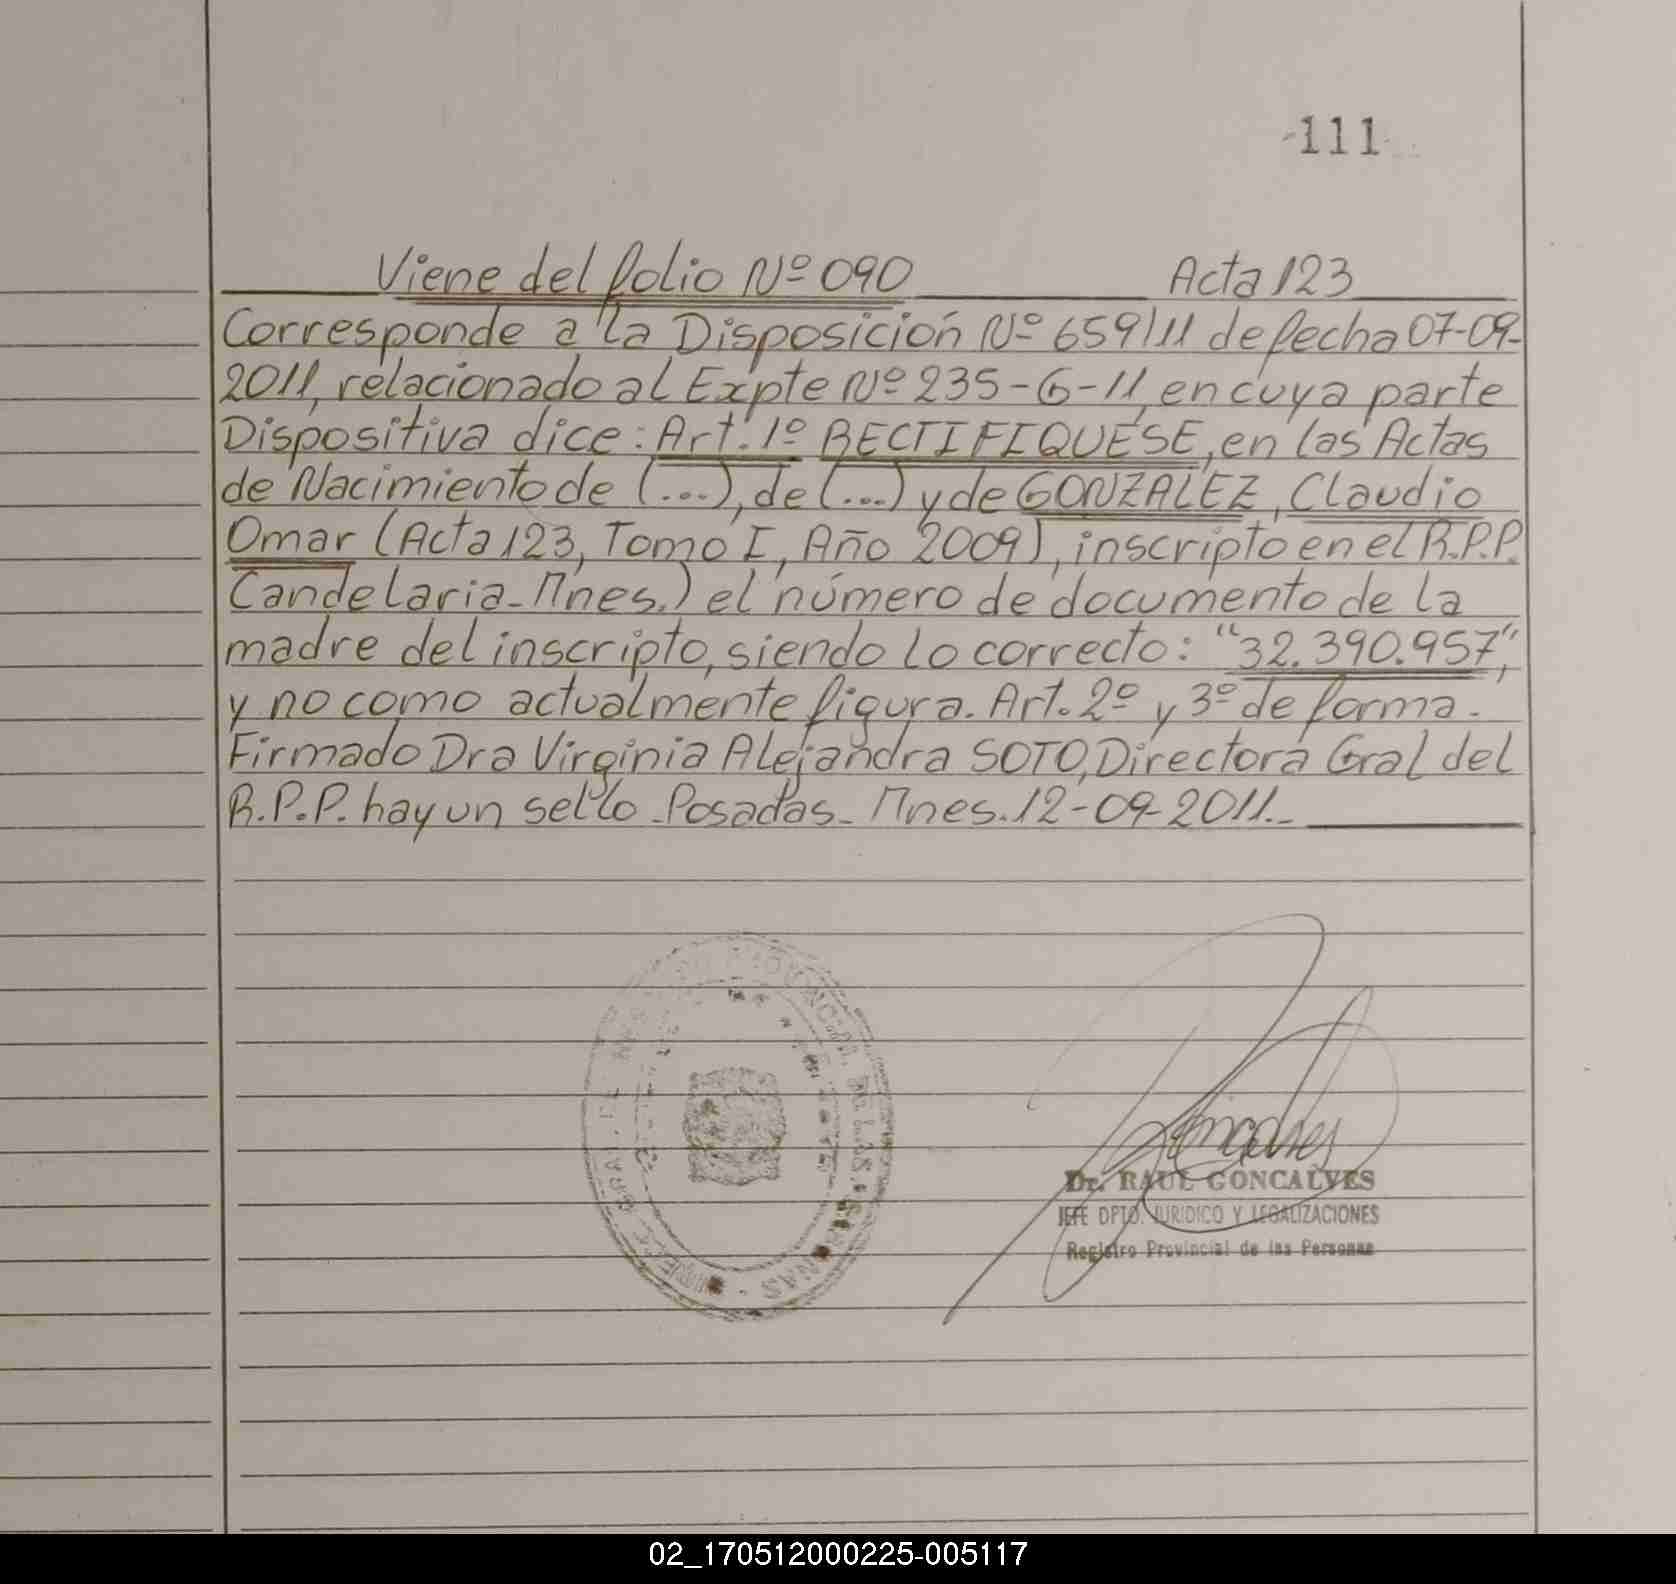 111
Viene del folio Nº 090 Acta 123
Corresponde a la Disposición Nº 659/11 de fecha 07-09-
2011, relacionado al Expte Nº 235-G-11, en cuya parte
Dispositiva dice: Art. 1º RECTIFIQUESE, en las Actas
de Nacimiento de (...), de (...) y de GONZALEZ, Claudio
Omar (Acta 123, Tomo I, Año 2009), inscripto en el R.P.P.
Candelaria-Mnes.) el número de documento de la
madre del inscripto, siendo lo correcto: "32.390.957",
y no como actualmente figura. Art. 2º y 3º de forma.
Firmado Dra Virginia Alejandra SOTO, Directora Gral del
R.P.P. hay un sello - Posadas - Mnes. 12-09-2011.-
Dr. RAUL GONCALVES
JEFE DPTO. JURIDICO Y LEGALIZACIONES
Registro Provincial de las Personas
02_170512000225-005117